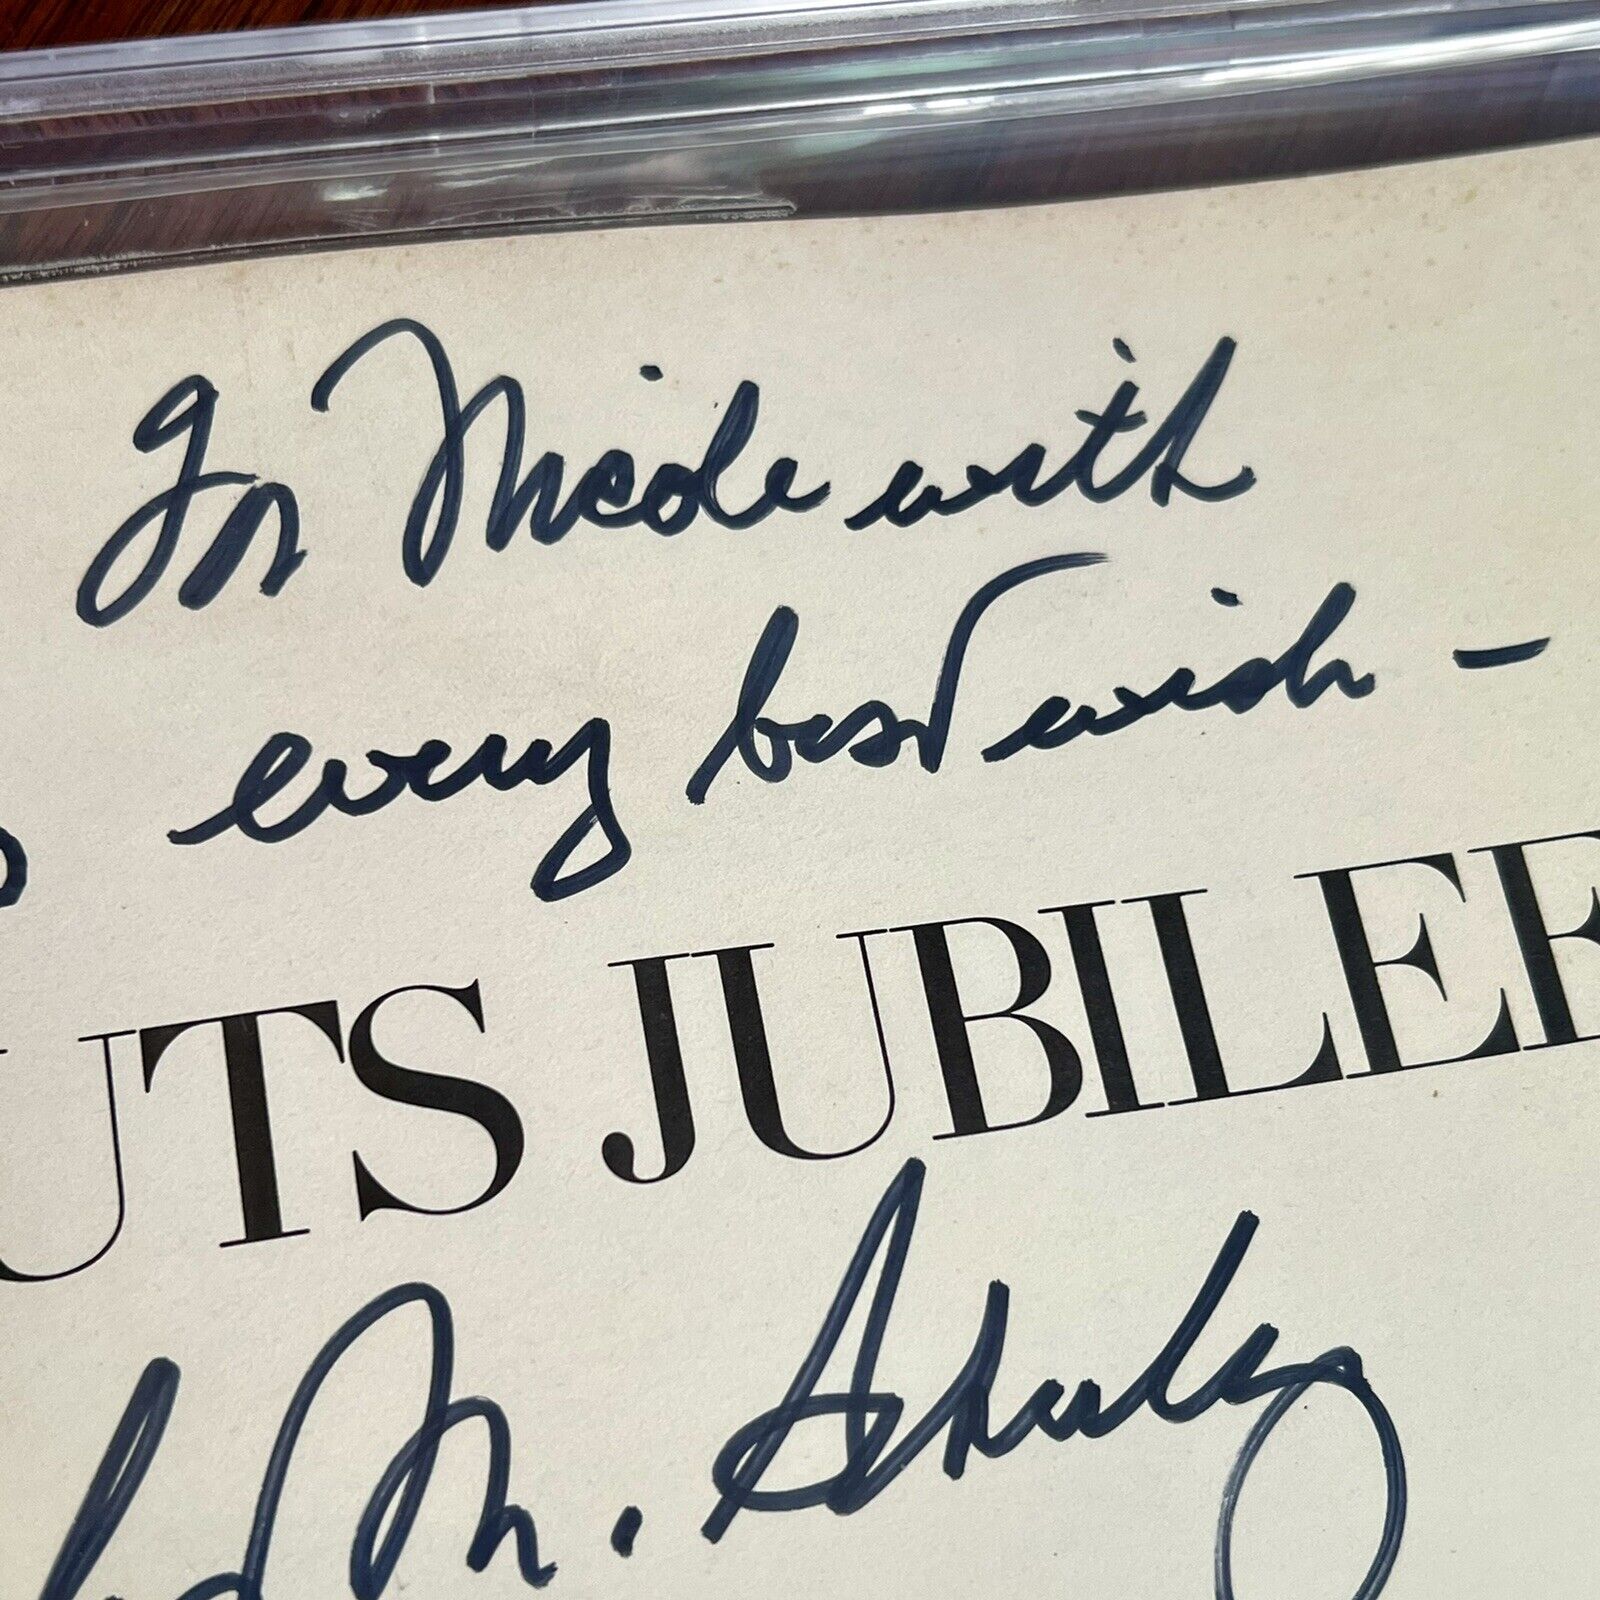 For Nicole with
every best wish –
UTS JUBILEE
M. Schulz